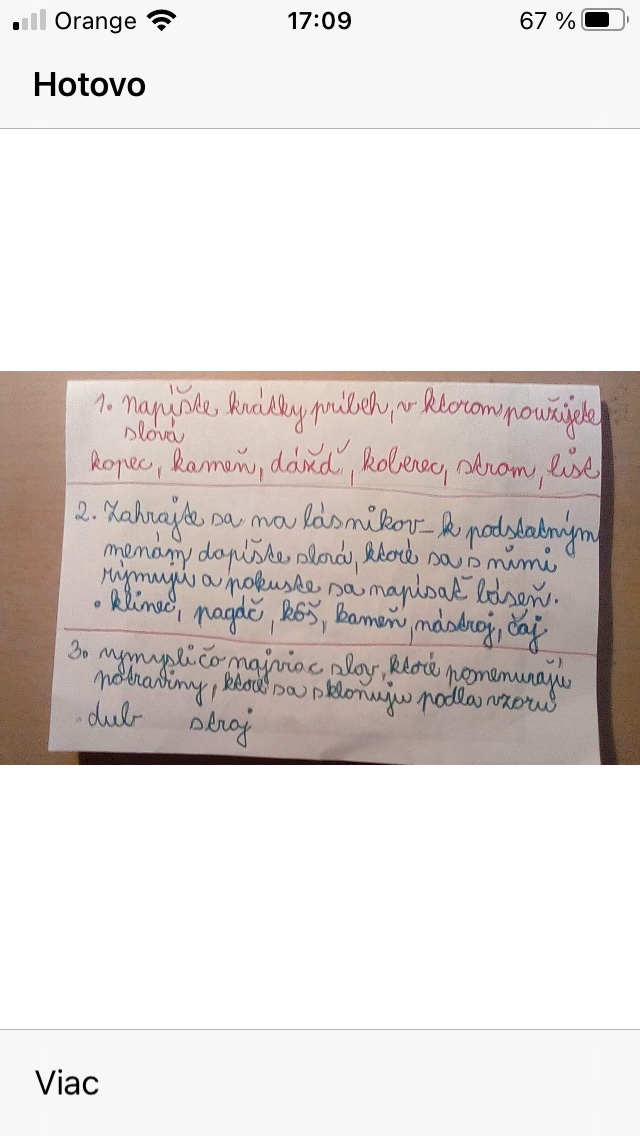 Orange 17:09 67 %
Hotovo
1. Napíšte krátky príbeh, v ktorom použijete
slová
kopec, kameň, dážď, koberec, strom, list
2. Zahrajte sa na básnikov - k podstatným
menám dopíšte slová, ktoré sa s nimi
rýmujú a pokuste sa napísať báseň.
• klinec, pagáč, kôš, kameň, nástroj, čaj
3. vymysli čo najviac slov, ktoré pomenúvajú
potraviny, ktoré sa skloňujú podľa vzoru
dub stroj
Viac